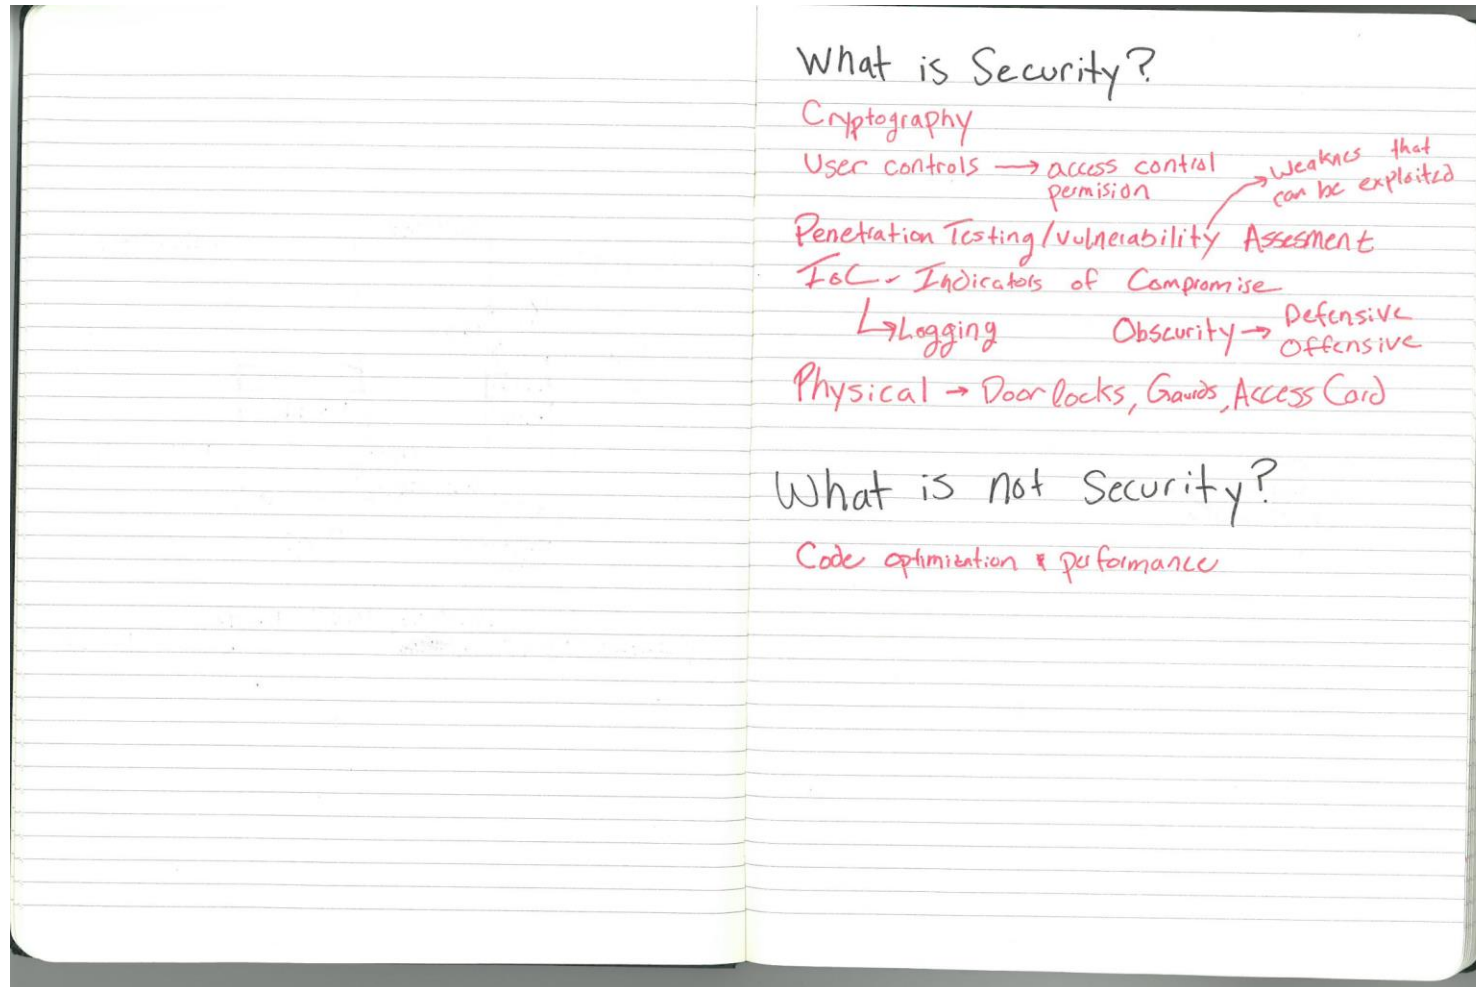 What is Security?
Cryptography
User controls → access control
permision
→ Weaknes that
can be exploited
Penetration Testing/Vulnerability Assesment
IoC - Indicators of Compromise
↳ Logging
Obscurity → Defensive
Offensive
Physical → Door locks, Gaurds, Access Card
What is not Security?
Code optimization & performance